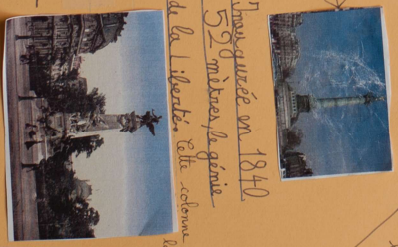 Inaugurée en 1840
52 mètres, le génie
de la Liberté. Cette colonne